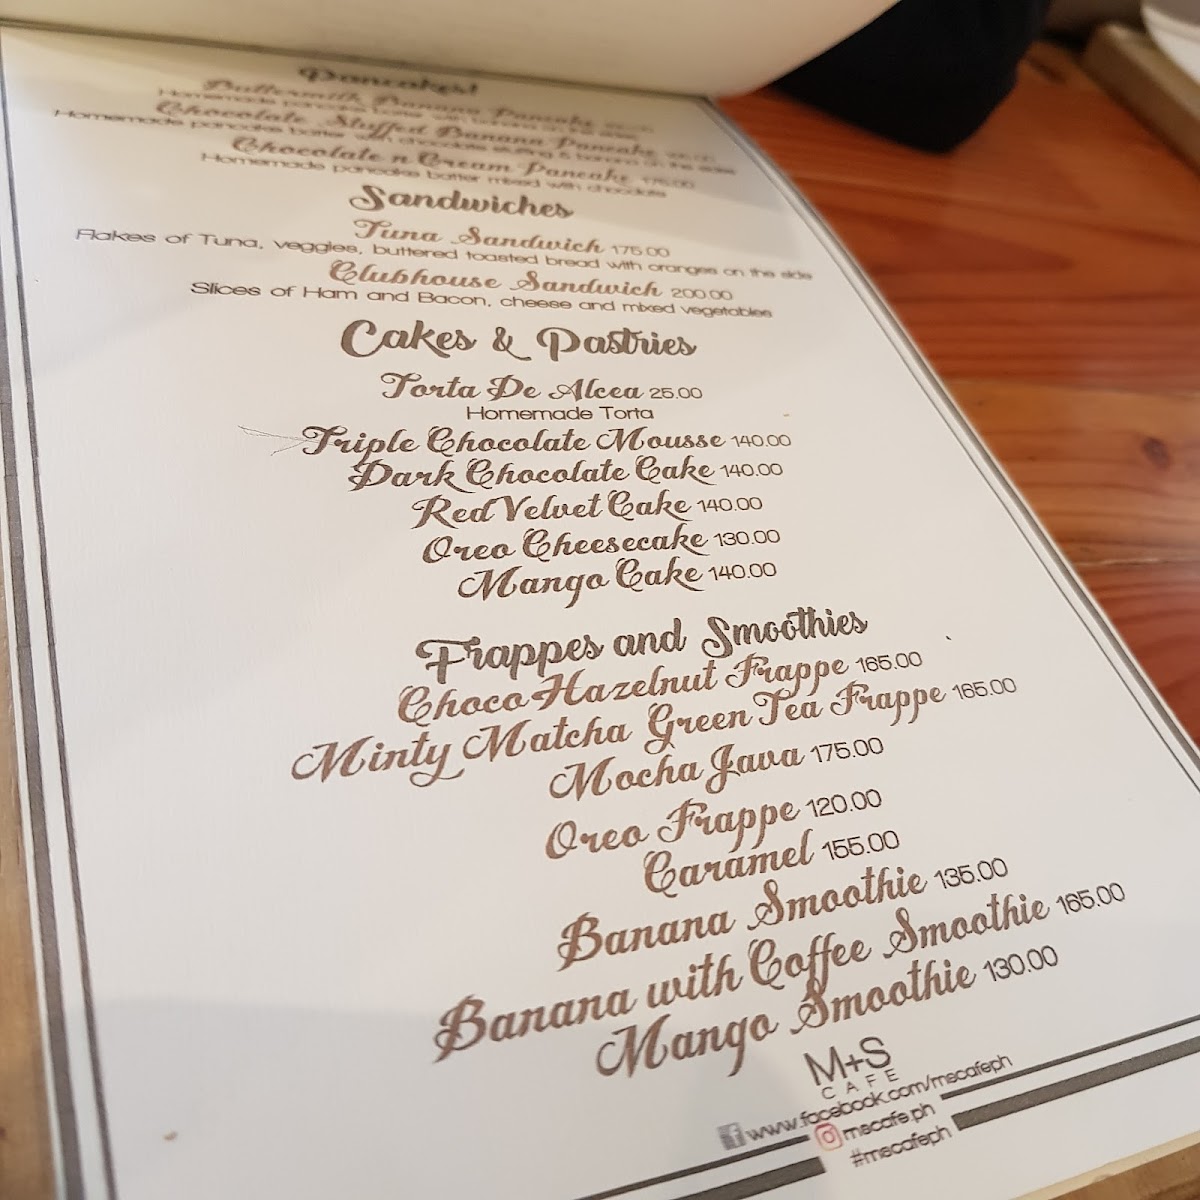 Pancakes!
Buttermilk Banana Pancake
Homemade pancake batter with banana on the side
Chocolate Stuffed Banana Pancake
Homemade pancake batter with chocolate stuffing & banana on the side
Chocolate n Cream Pancake 175.00
Homemade pancake batter mixed with chocolate
Sandwiches
Tuna Sandwich 175.00
Flakes of Tuna, veggies, buttered toasted bread with oranges on the side
Clubhouse Sandwich 200.00
Slices of Ham and Bacon, cheese and mixed vegetables
Cakes & Pastries
Torta De Alcea 25.00
Homemade Torta
Triple Chocolate Mousse 140.00
Dark Chocolate Cake 140.00
Red Velvet Cake 140.00
Oreo Cheesecake 130.00
Mango Cake 140.00
Frappes and Smoothies
Choco Hazelnut Frappe 165.00
Minty Matcha Green Tea Frappe 165.00
Mocha Java 175.00
Oreo Frappe 120.00
Caramel 155.00
Banana Smoothie 135.00
Banana with Coffee Smoothie 165.00
Mango Smoothie 130.00
M+S
CAFE
www.facebook.com/mscafeph
mscafe.ph
#mscafeph